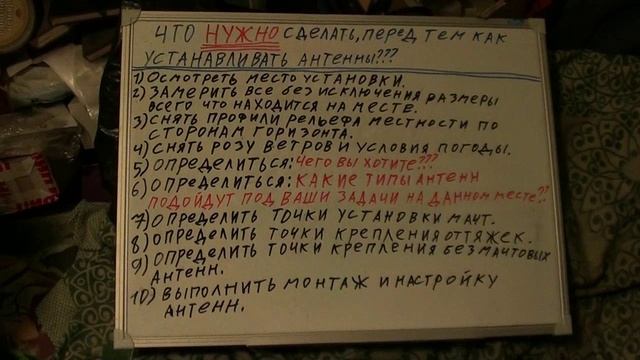 ЧТО НУЖНО СДЕЛАТЬ, ПЕРЕД ТЕМ КАК
УСТАНАВЛИВАТЬ АНТЕННЫ???
1) ОСМОТРЕТЬ МЕСТО УСТАНОВКИ.
2) ЗАМЕРИТЬ ВСЕ БЕЗ ИСКЛЮЧЕНИЯ РАЗМЕРЫ
ВСЕГО ЧТО НАХОДИТСЯ НА МЕСТЕ.
3) СНЯТЬ ПРОФИЛИ РЕЛЬЕФА МЕСТНОСТИ ПО
СТОРОНАМ ГОРИЗОНТА.
4) СНЯТЬ РОЗУ ВЕТРОВ И УСЛОВИЯ ПОГОДЫ.
5) ОПРЕДЕЛИТЬСЯ: ЧЕГО ВЫ ХОТИТЕ???
6) ОПРЕДЕЛИТЬСЯ: КАКИЕ ТИПЫ АНТЕНН
ПОДОЙДУТ ПОД ВАШИ ЗАДАЧИ НА ДАННОМ МЕСТЕ??
7) ОПРЕДЕЛИТЬ ТОЧКИ УСТАНОВКИ МАЧТ.
8) ОПРЕДЕЛИТЬ ТОЧКИ КРЕПЛЕНИЯ ОТТЯЖЕК.
9) ОПРЕДЕЛИТЬ ТОЧКИ КРЕПЛЕНИЯ БЕЗМАЧТОВЫХ
АНТЕНН.
10) ВЫПОЛНИТЬ МОНТАЖ И НАСТРОЙКУ
АНТЕНН.